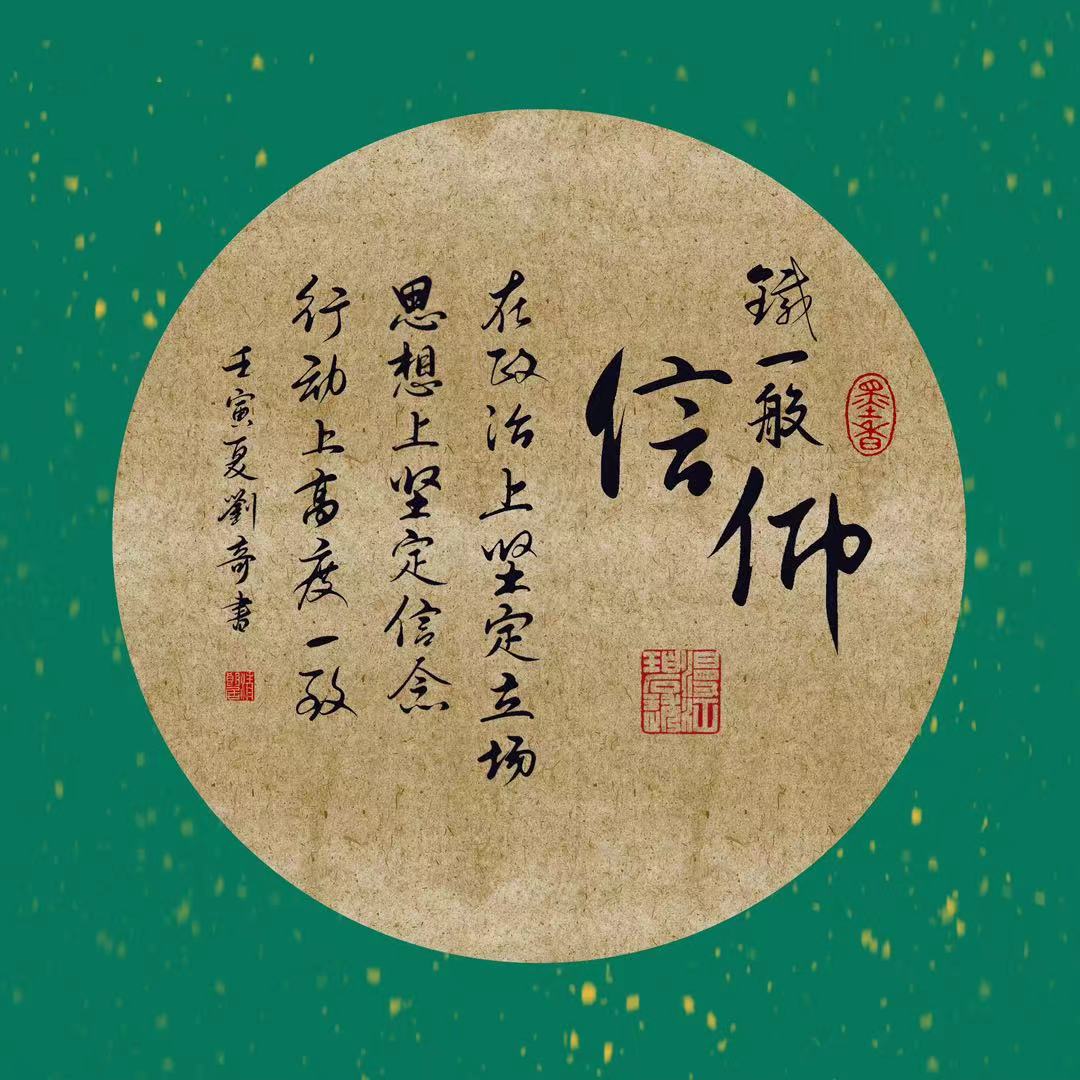 鐵一般
信仰
在政治上坚定立场
思想上坚定信念
行动上高度一致
壬寅夏劉奇書
墨香